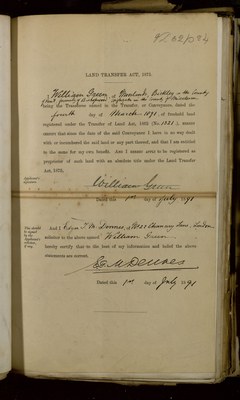 LAND TRANSFER ACT, 1875.
I William Green of
in the County
being the Transferee named in the Transfer or Conveyance, dated the
fourth day of March 1891, of freehold land
registered under the Transfer of Land Act, 1862 (No. ), answer
assert that since the date of the said Conveyance I have in no way dealt
with or incumbered the said land or any part thereof, and that I am entitled
to the same for my own benefit. And I answer assent to be registered as
proprietor of such land with an absolute title under the Land Transfer
Act, 1875.
Applicant's signature.
William Green
Dated this 1st day of July 1891
This should be signed by the Applicant's solicitor, if any.
And I of Chancery Lane, London
solicitor to the above named William Green
hereby certify that to the best of my information and belief the above
statements are correct.
Dated this 1st day of July 1891